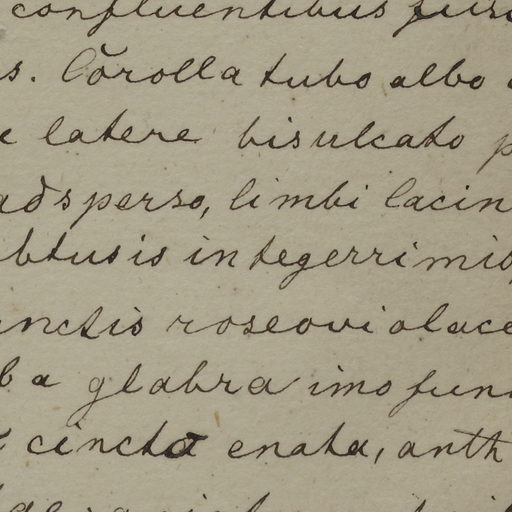 confluentibus fus
s. Corolla tubo albo
latere bisulcato p
adsperso, limbi lacin
btusis integerrimis
nctis roseoviolace
ba glabra imo fun
cincta enata, anth